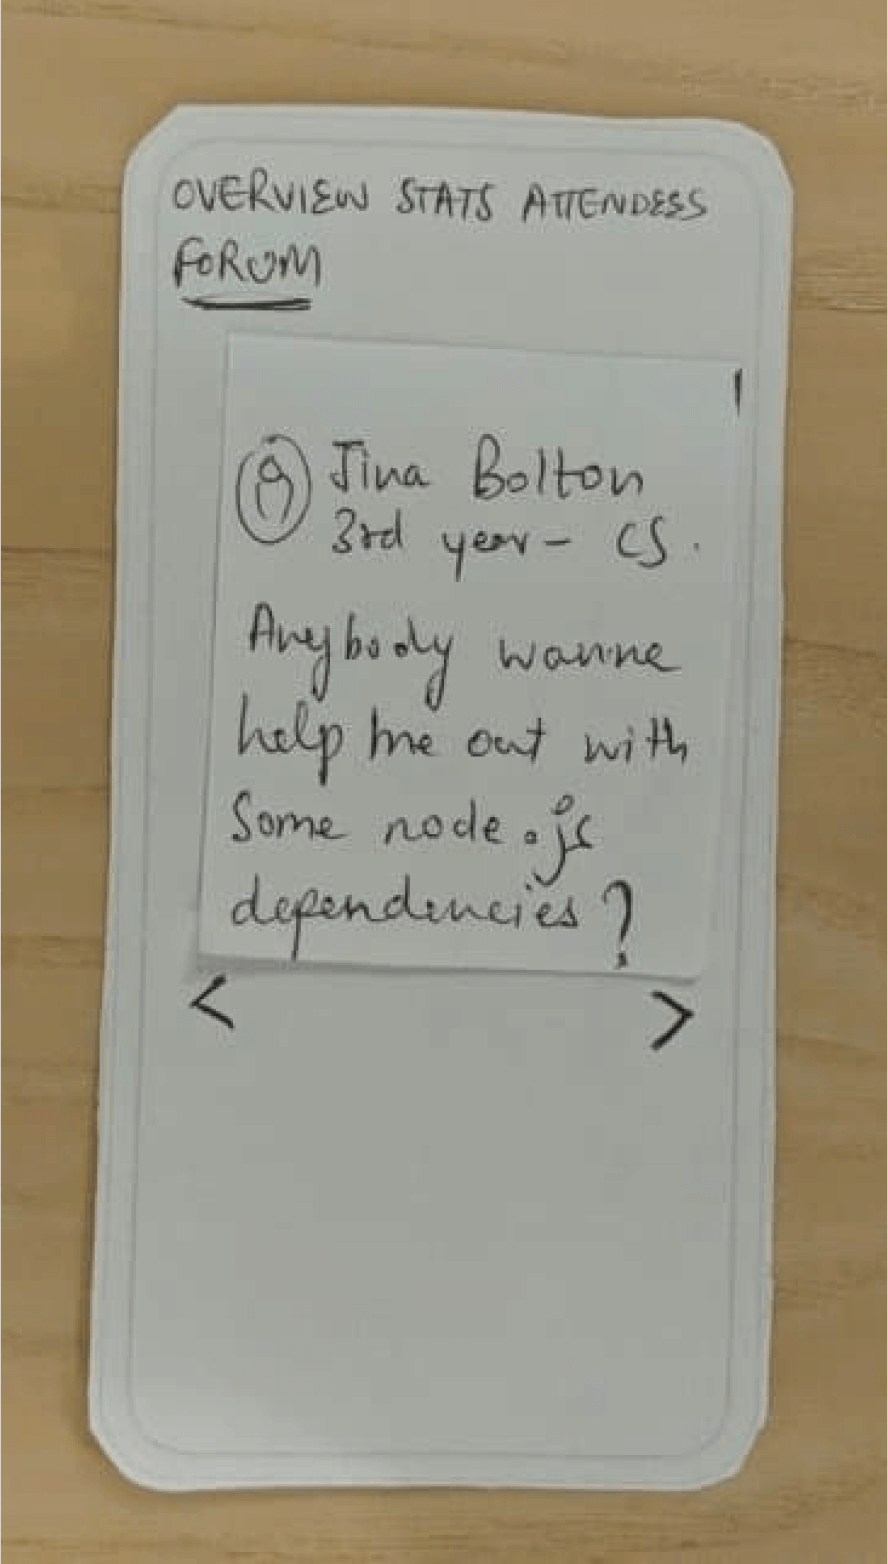 OVERVIEW STATS ATTENDESS
FORUM
Jina Bolton
3rd year - CS.
Anybody wanne
help me out with
Some node.js
dependencies?
< >